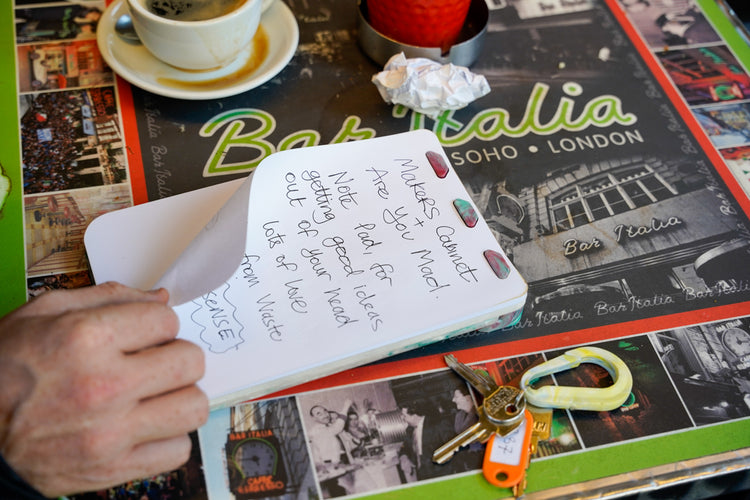 Bar Italia
SOHO • LONDON
Bar Italia
Makers Cabinet
+
Are You Mad.
Note Pad, for
getting good ideas
out of your head
lots of love
from Waste
SENSE
Bar Italia
Bar Italia
Bar Italia
Bar Italia
BAR ITALIA
CAFFE
ESPRESSO
87